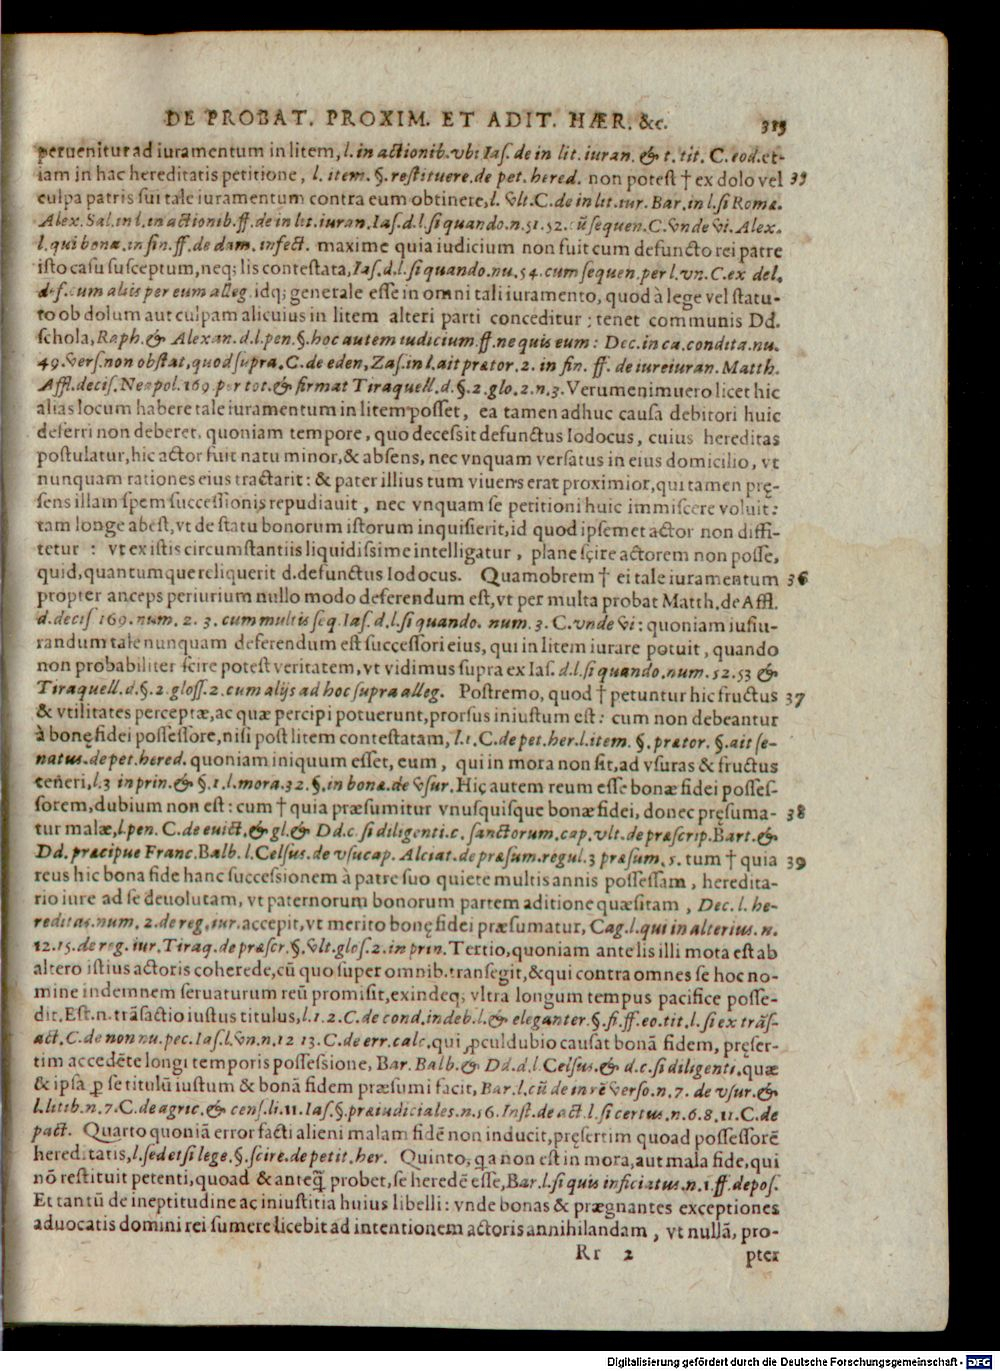 DE PROBAT. PROXIM. ET ADIT. HÆR. &c. 315
peruenitur ad iuramentum in litem, l. in actionib. vbi Ias. de in lit. iuran. & t. tit. C. eod. et-
iam in hac hereditatis petitione, l. item. §. restituere. de pet. hered. non potest † ex dolo vel 35
culpa patris sui tale iuramentum contra eum obtinere, l. vlt. C. de in lit. iur. Bar. in l. si Roma.
Alex. Sal. in l. in actionib. ff. de in lit. iuran. Ias. d. l. si quando. n. 51. 52. cũ sequen. C. vnde vi. Alex.
l. qui bona. in fin. ff. de dam. infect. maxime quia iudicium non fuit cum defuncto rei patre
isto casu susceptum, neq; lis contestata, Ias. d. l. si quando. nu. 54. cum sequen. per l. vn. C. ex del.
def. cum aliis per eum alleg. idq; generale esse in omni tali iuramento, quod à lege vel statu-
to ob dolum aut culpam alicuius in litem alteri parti conceditur; tenet communis Dd.
schola, Raph. & Alexan. d. l. pen. §. hoc autem iudicium. ff. ne quis eum: Dec. in ca. condita. nu.
49. vers. non obstat, quod supra. C. de eden, Zas. in l. ait prætor. 2. in fin. ff. de iureiuran. Matth.
Affl. decis. Neapol. 169. per tot. & firmat Tiraquell. d. §. 2. glo. 2. n. 3. Verumenimuero licet hic
alias locum habere tale iuramentum in litem posset, ea tamen adhuc causa debitori huic
deferri non deberet, quoniam tempore, quo decessit defunctus Iodocus, cuius hereditas
postulatur, hic actor fuit natu minor, & absens, nec vnquam versatus in eius domicilio, vt
nunquam rationes eius tractarit: & pater illius tum viuens erat proximior, qui tamen prę-
sens illam spem successionis repudiauit, nec vnquam se petitioni huic immiscere voluit:
tam longe abest, vt de statu bonorum istorum inquisierit, id quod ipsemet actor non diffi-
tetur: vt ex istis circumstantiis liquidissime intelligatur, plane scire actorem non posse,
quid, quantumque reliquerit d. defunctus Iodocus. Quamobrem † ei tale iuramentum 36
propter anceps periurium nullo modo deferendum est, vt per multa probat Matth. de Affl.
d. decis 169. num. 2. 3. cum multis seq. Ias. d. l. si quando. num. 3. C. vnde vi: quoniam iusiu-
randum tale nunquam deferendum est successori eius, qui in litem iurare potuit, quando
non probabiliter scire potest veritatem, vt vidimus supra ex Ias. d. l. si quando. num. 52. 53 &
Tiraquell. d. §. 2. gloss. 2. cum alijs ad hoc supra alleg. Postremo, quod † petuntur hic fructus 37
& vtilitates perceptæ, ac quæ percipi potuerunt, prorsus iniustum est: cum non debeantur
à bonę fidei possessore, nisi post litem contestatam, l. 1. C. de pet. her. l. item. §. prætor. §. ait se-
natus. de pet. hered. quoniam iniquum esset, eum, qui in mora non sit, ad vsuras & fructus
teneri, l. 3 in prin. & §. 1. l. mora. 32. §. in bonæ. de vsur. Hic autem reum esse bonæ fidei posses-
sorem, dubium non est: cum † quia præsumitur vnusquisque bonæ fidei, donec pręsuma- 38
tur malæ, l. pen. C. de euict. & gl. & Dd. c. si diligenti. c. sanctorum. cap. vlt. de præscrip. Bart. &
Dd. præcipue Franc. Balb. l. Celsus. de vsucap. Alciat. de præsum. regul. 3 præsum. 5. tum † quia 39
reus hic bona fide hanc successionem à patre suo quiete multis annis possessam, heredita-
rio iure ad se deuolutam, vt paternorum bonorum partem aditione quæsitam, Dec. l. he-
reditas. num. 2. de reg. iur. accepit, vt merito bonę fidei præsumatur, Cag. l. qui in alterius. n.
12. 15. de reg. iur. Tiraq. de præscr. §. vlt. glos. 2. in prin. Tertio, quoniam ante lis illi mota est ab
altero istius actoris coherede, cũ quo super omnib. transegit, & qui contra omnes se hoc no-
mine indemnem seruaturum reũ promisit, exindeq; vltra longum tempus pacifice posse-
dit. Est. n. trãsactio iustus titulus, l. 1. 2. C. de cond. indeb. l. & eleganter. §. fi. ff. eo. tit. l. si ex trãs-
act. C. de non nu. pec. Ias. l. vn. n. 12 13. C. de err. calc. qui ꝓculdubio causat bonã fidem, pręser-
tim accedẽte longi temporis possessione, Bar. Balb. & Dd. d. l. Celsus. & d. c. si diligenti. quæ
& ipsa ꝑ se titulũ iustum & bonã fidem præsumi facit, Bar. l. cũ de in rẽ verso. n. 7. de vsur. &
l. litib. n. 7. C. de agric. & cens. li. 11. Ias. §. præiudiciales. n. 56. Inst. de act. l. si certus. n. 6. 8. 11. C. de
pact. Quarto quoniã error facti alieni malam fidẽ non inducit, pręsertim quoad possessorẽ
hereditatis, l. sed etsi lege. §. scire. de petit. her. Quinto, qa non est in mora, aut mala fide, qui
nõ restituit petenti, quoad & anteq̃ probet, se heredẽ esse, Bar. l. si quis inficiatus. n. 1. ff. depos.
Et tantũ de ineptitudine ac iniustitia huius libelli: vnde bonas & prægnantes exceptiones
aduocatis domini rei sumere licebit ad intentionem actoris annihilandam, vt nullã, pro-
Rr 2 pter
Digitalisierung gefördert durch die Deutsche Forschungsgemeinschaft - DFG